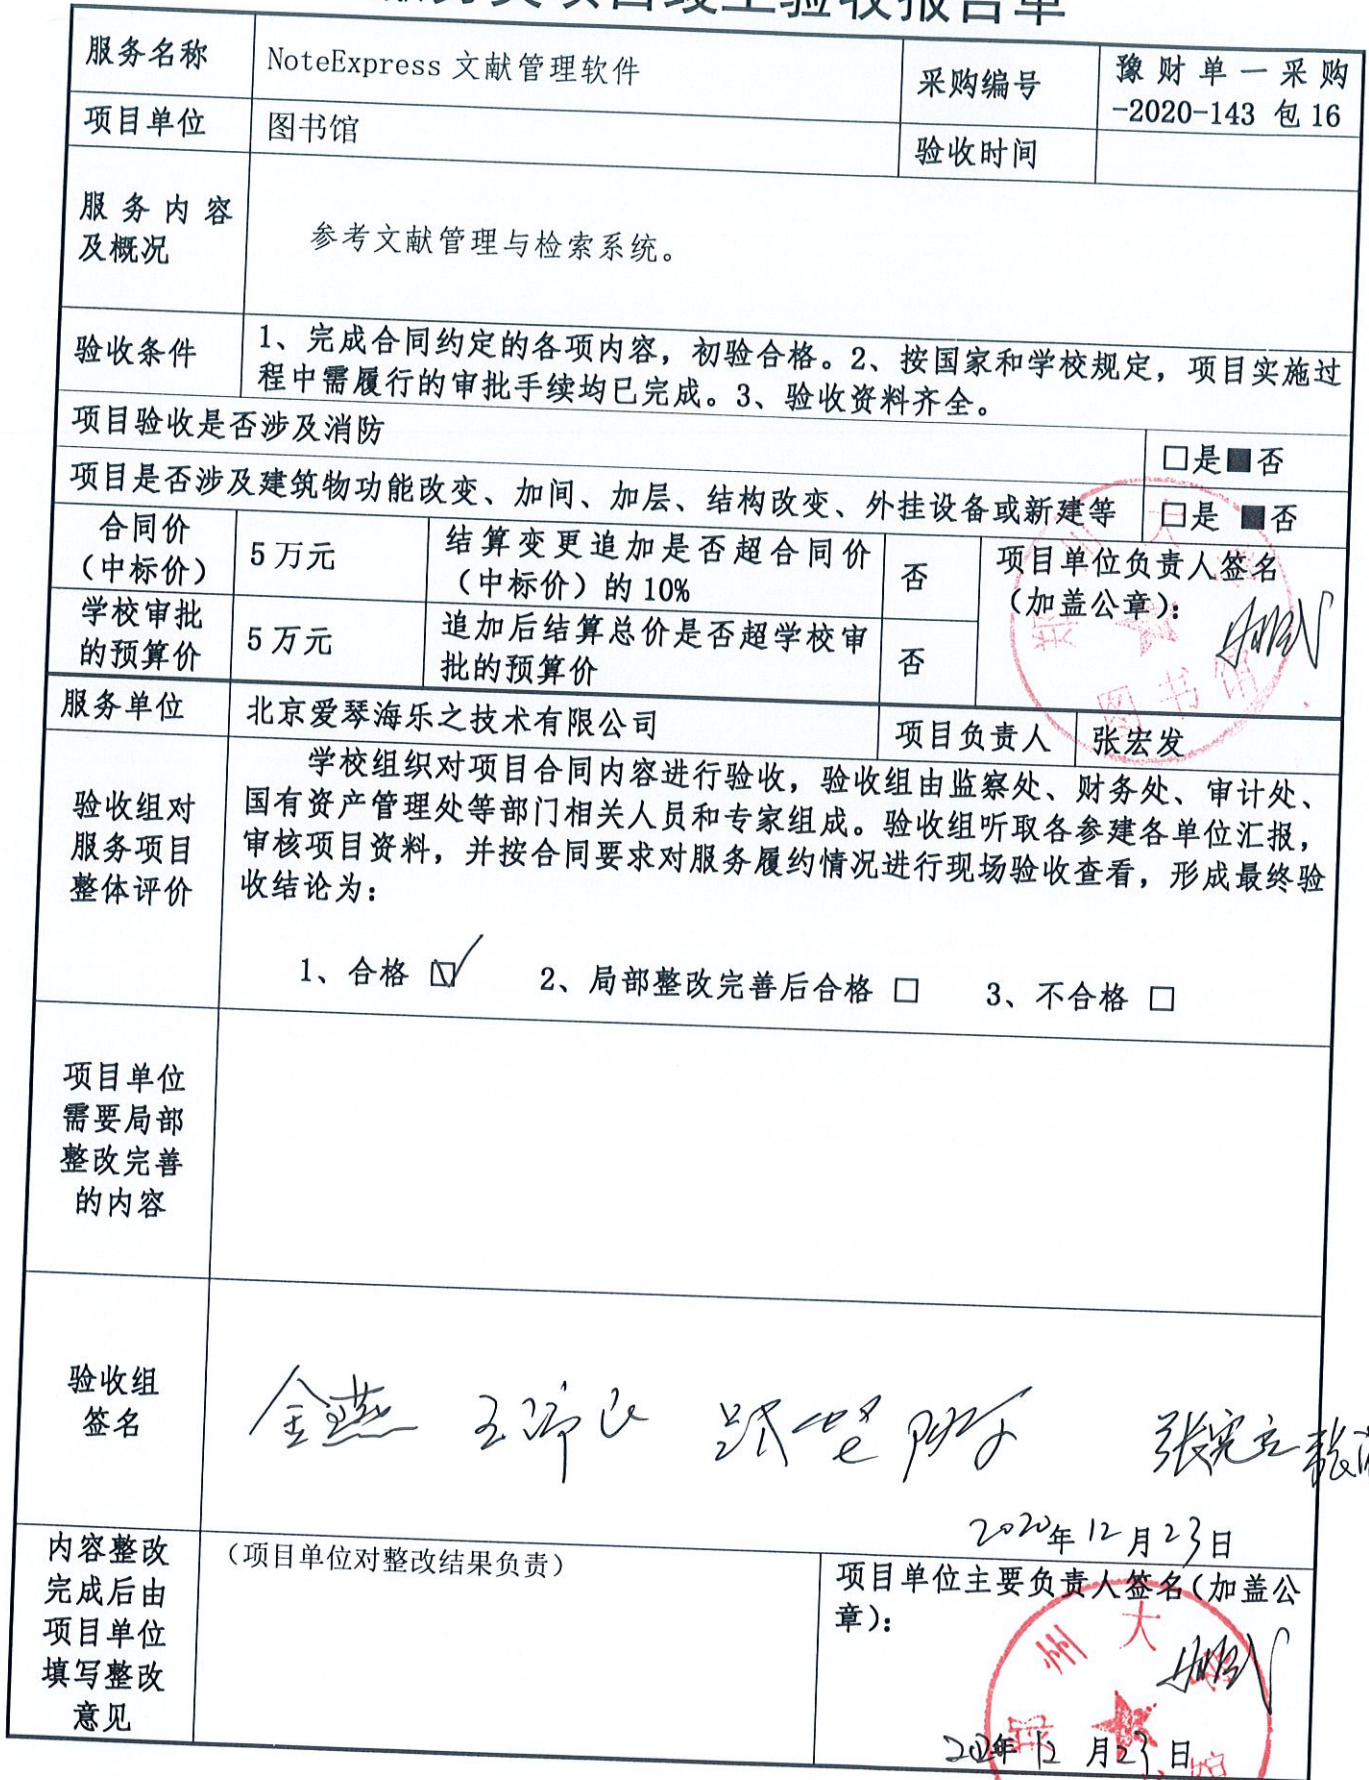 服务类项目竣工验收报告单
服务名称
NoteExpress 文献管理软件
采购编号
豫财单一采购
-2020-143 包16
项目单位
图书馆
验收时间
服务内容
及概况
参考文献管理与检索系统。
验收条件
1、完成合同约定的各项内容，初验合格。2、按国家和学校规定，项目实施过
程中需履行的审批手续均已完成。3、验收资料齐全。
项目验收是否涉及消防
□是■否
项目是否涉及建筑物功能改变、加间、加层、结构改变、外挂设备或新建等
□是 ■否
合同价
（中标价）
5万元
结算变更追加是否超合同价
（中标价）的10%
否
项目单位负责人签名
（加盖公章）：
学校审批
的预算价
5万元
追加后结算总价是否超学校审
批的预算价
否
图书馆
服务单位
北京爱琴海乐之技术有限公司
项目负责人
张宏发
验收组对
服务项目
整体评价
学校组织对项目合同内容进行验收，验收组由监察处、财务处、审计处、
国有资产管理处等部门相关人员和专家组成。验收组听取各参建各单位汇报，
审核项目资料，并按合同要求对服务履约情况进行现场验收查看，形成最终验
收结论为：
1、合格 ☑ 2、局部整改完善后合格 □ 3、不合格 □
项目单位
需要局部
整改完善
的内容
验收组
签名
金燕
2020年12月23日
内容整改
完成后由
项目单位
填写整改
意见
（项目单位对整改结果负责）
项目单位主要负责人签名（加盖公
章）：
郑州大学
2020年12月23日